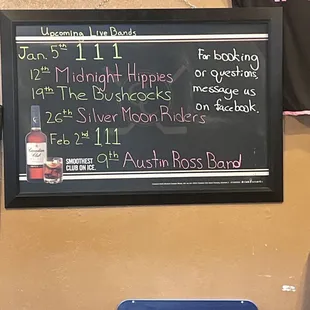 Upcoming Live Bands
Jan. 5th 111
12th Midnight Hippies
19th The Bushcocks
26th Silver Moon Riders
Feb 2nd 111
9th Austin Ross Band
For booking
or questions,
message us
on facebook.
SMOOTHEST
CLUB ON ICE.